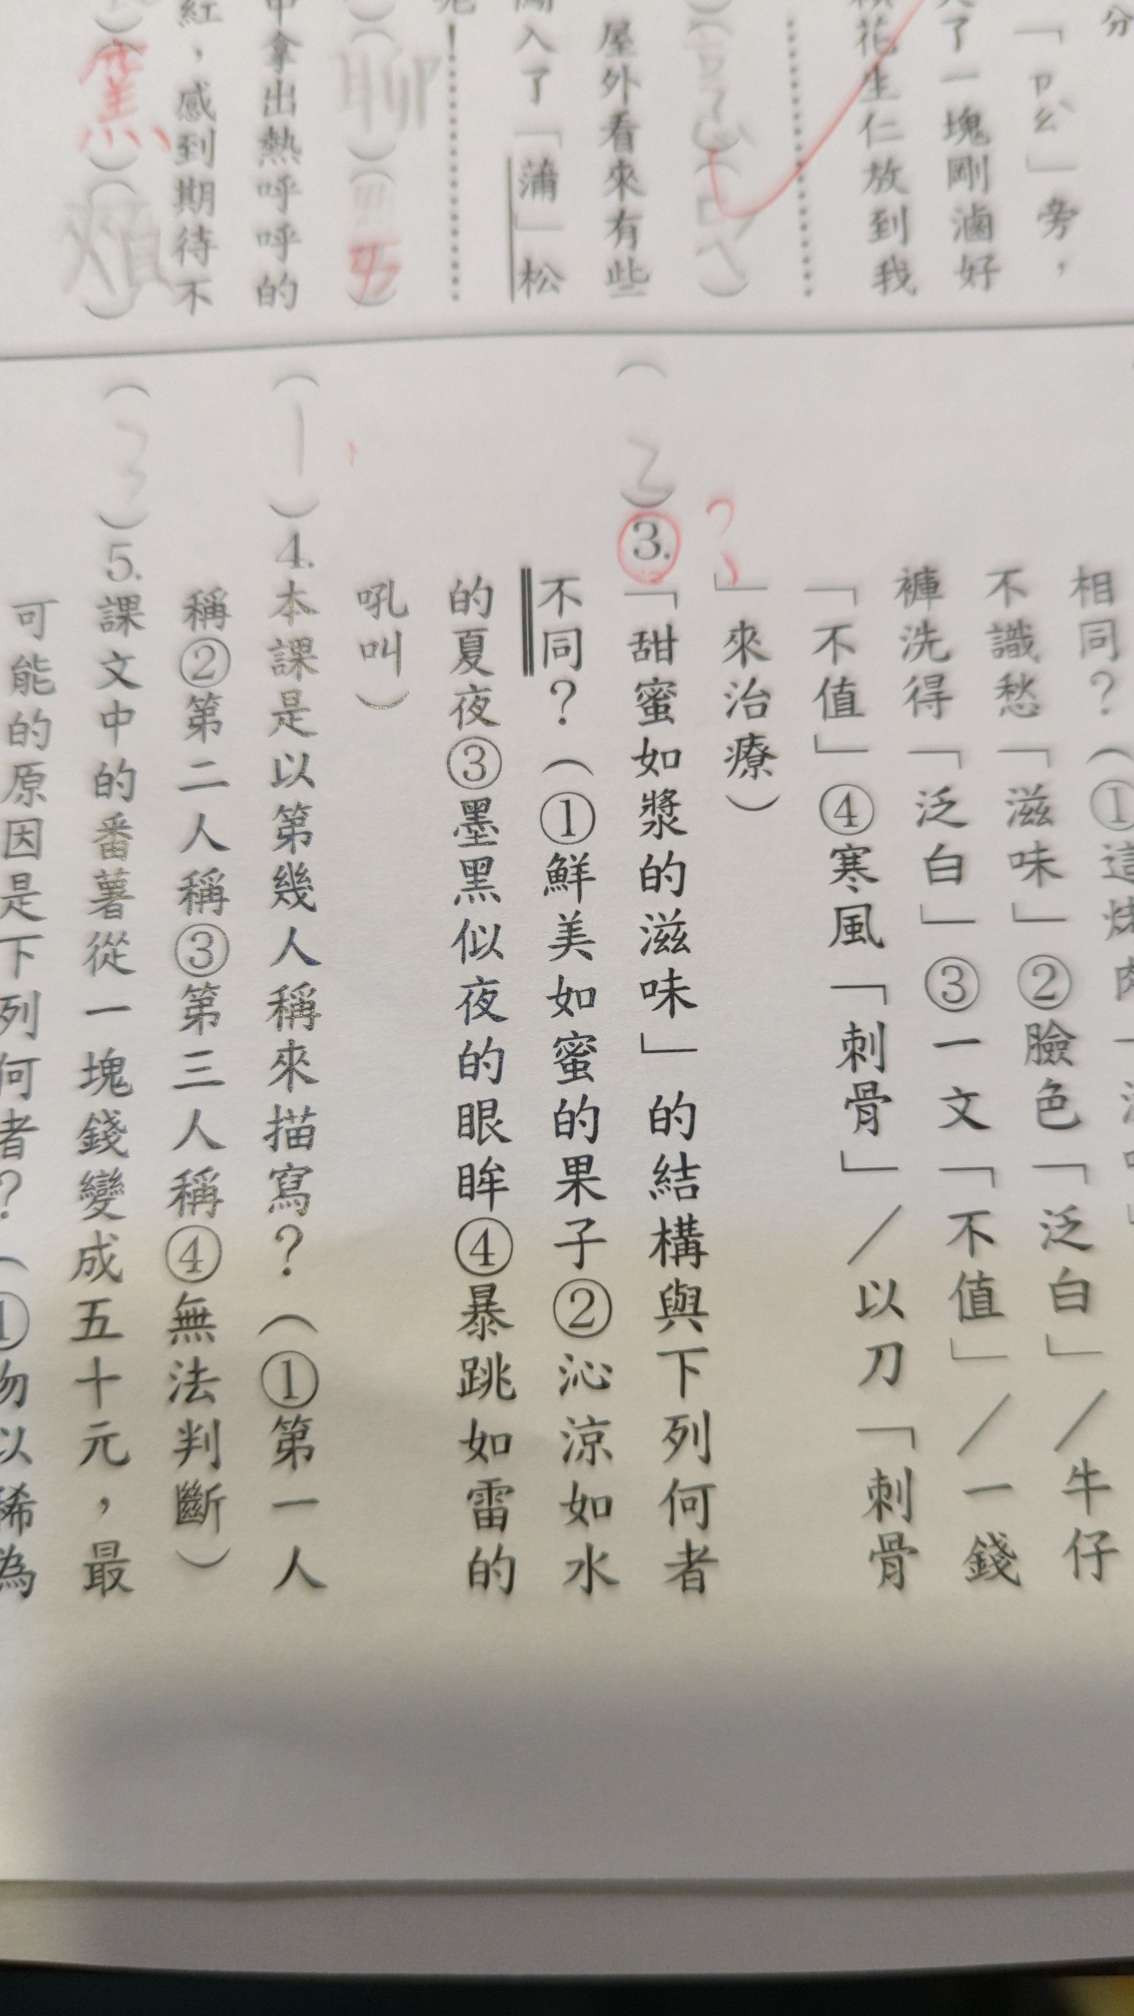 分
「ㄗㄠˋ」旁，
了一塊剛滷好
花生仁放到我
屋外看來有些
入了「蒲」松
！
拿出熱呼呼的
紅，感到期待不
聊
熏
煩
相同？（①這烤肉
不識愁「滋味」②臉色「泛白」／牛仔
褲洗得「泛白」③一文「不值」／一錢
「不值」④寒風「刺骨」／以刀「刺骨
」來治療）
？
（2）3.「甜蜜如漿的滋味」的結構與下列何者
不同？（①鮮美如蜜的果子②沁涼如水
的夏夜③墨黑似夜的眼眸④暴跳如雷的
吼叫）
（1）4.本課是以第幾人稱來描寫？（①第一人
稱②第二人稱③第三人稱④無法判斷）
（3）5.課文中的番薯從一塊錢變成五十元，最
可能的原因是下列何者？（①物以稀為